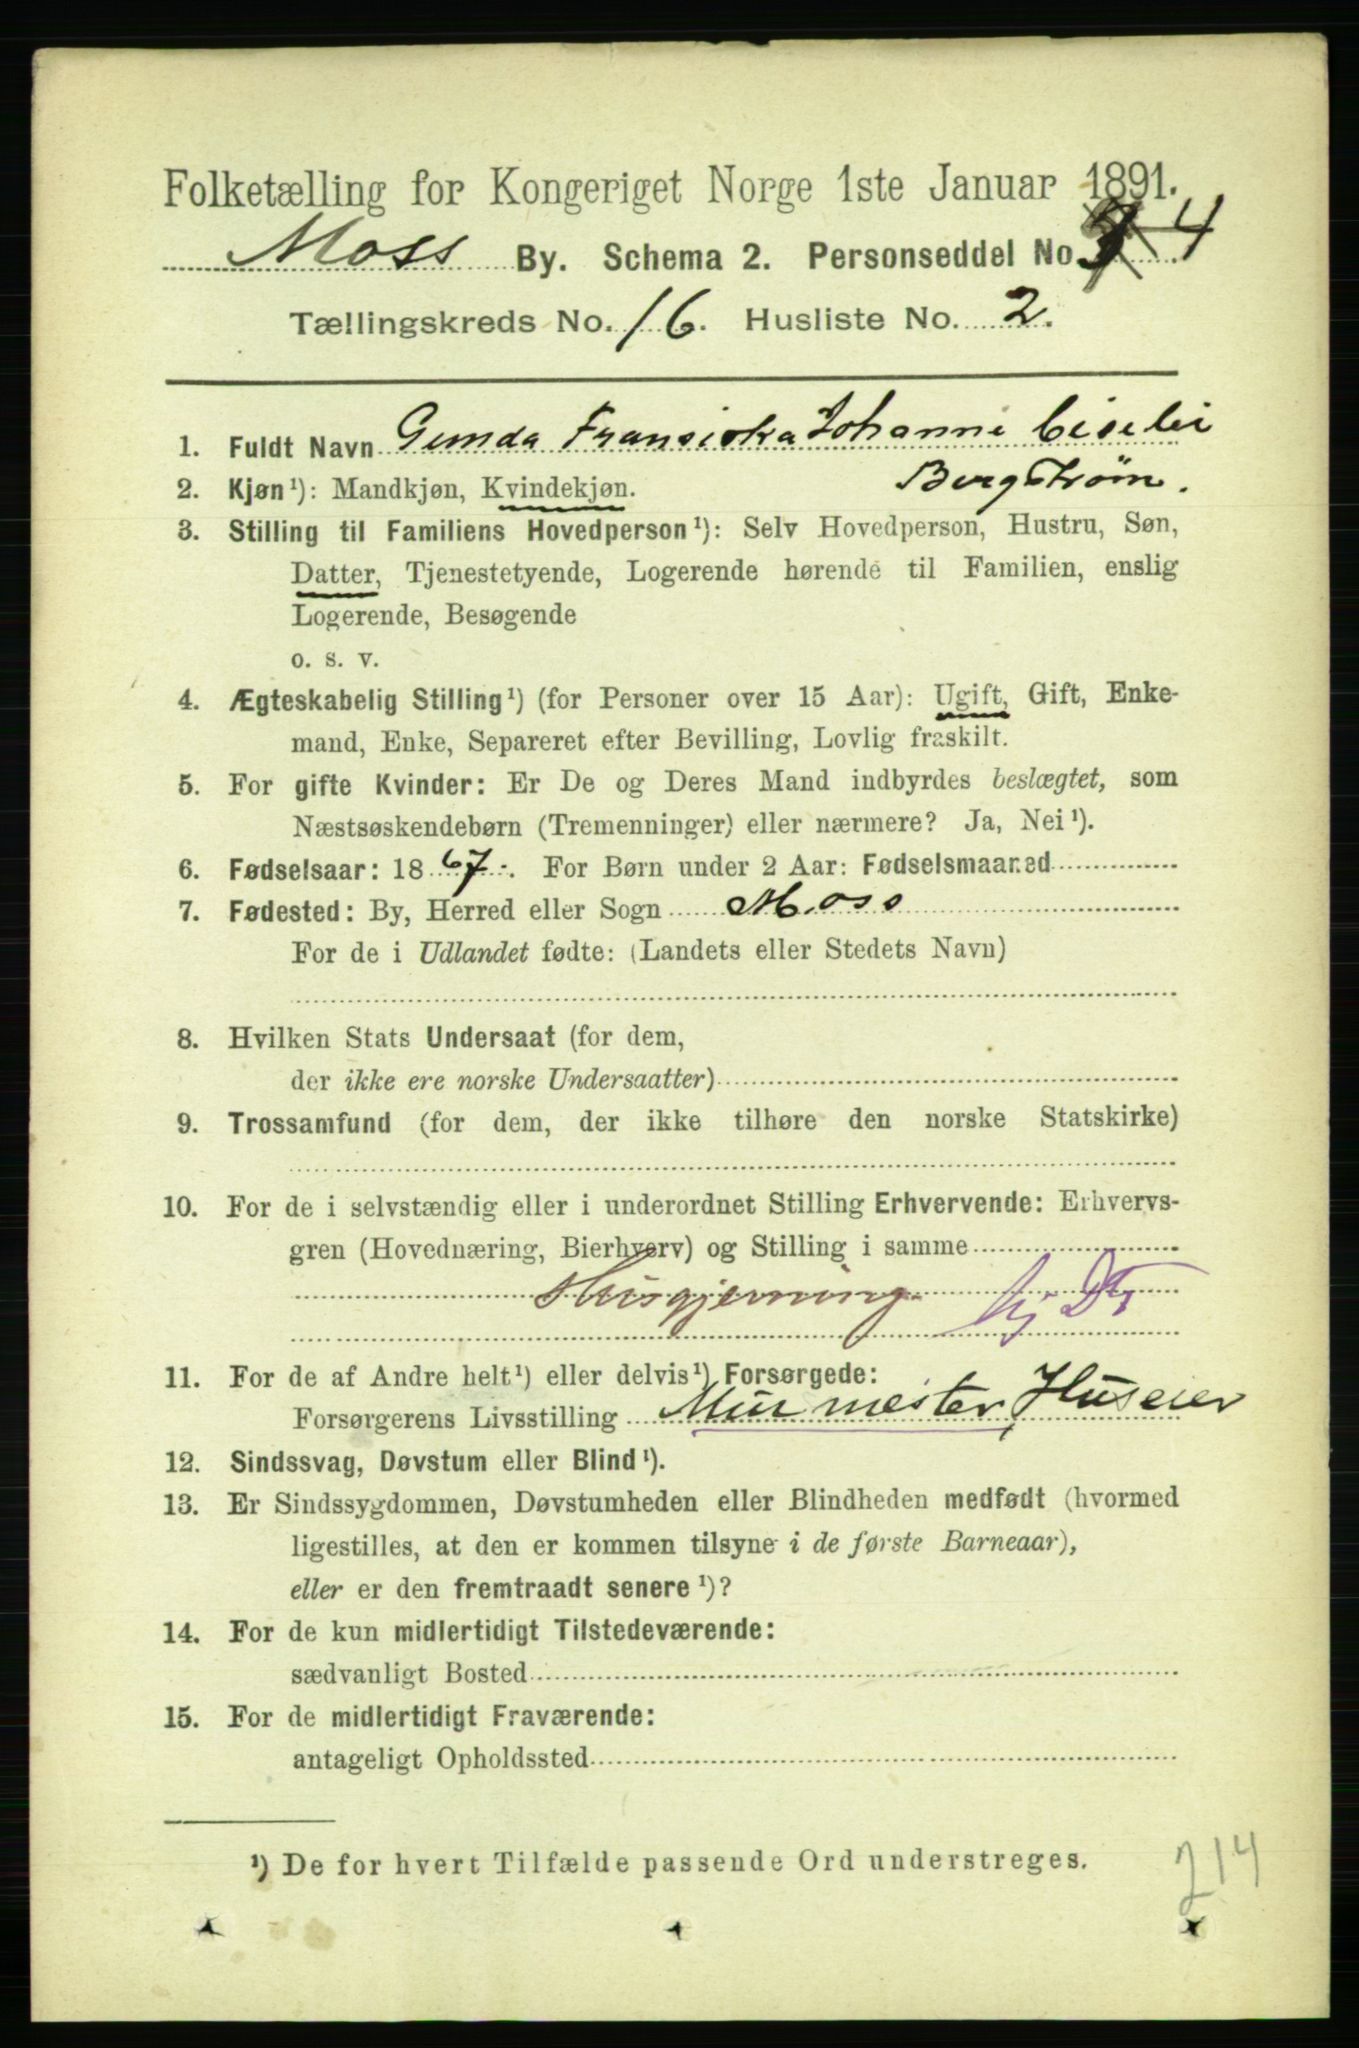 Folketælling for Kongeriget Norge 1ste Januar 1891.
Moss By. Schema 2. Personseddel No. 4
Tællingskreds No. 16. Husliste No. 2.
1. Fuldt Navn Gunda Fransiska Johanne
Bergstrøm.
2. Kjøn¹): Mandkjøn, Kvindekjøn.
3. Stilling til Familiens Hovedperson¹): Selv Hovedperson, Hustru, Søn,
Datter, Tjenestetyende, Logerende hørende til Familien, enslig
Logerende, Besøgende
o. s. v.
4. Ægteskabelig Stilling¹) (for Personer over 15 Aar): Ugift, Gift, Enke-
mand, Enke, Separeret efter Bevilling, Lovlig fraskilt.
5. For gifte Kvinder: Er De og Deres Mand indbyrdes beslægtet, som
Næstsøskendebørn (Tremenninger) eller nærmere? Ja, Nei¹).
6. Fødselsaar: 1867. For Børn under 2 Aar: Fødselsmaaned
7. Fødested: By, Herred eller Sogn Moss
For de i Udlandet fødte: (Landets eller Stedets Navn)
8. Hvilken Stats Undersaat (for dem,
der ikke ere norske Undersaatter)
9. Trossamfund (for dem, der ikke tilhøre den norske Statskirke)
10. For de i selvstændig eller i underordnet Stilling Erhvervende: Erhvervs-
gren (Hovednæring, Bierhverv) og Stilling i samme
Husgjerning
11. For de af Andre helt¹) eller delvis¹) Forsørgede:
Forsørgerens Livsstilling Murmester, Huseier
12. Sindssvag, Døvstum eller Blind¹).
13. Er Sindssygdommen, Døvstumheden eller Blindheden medfødt (hvormed
ligestilles, at den er kommen tilsyne i de første Barneaar),
eller er den fremtraadt senere¹)?
14. For de kun midlertidigt Tilstedeværende:
sædvanligt Bosted
15. For de midlertidigt Fraværende:
antageligt Opholdssted
¹) De for hvert Tilfælde passende Ord understreges.
214